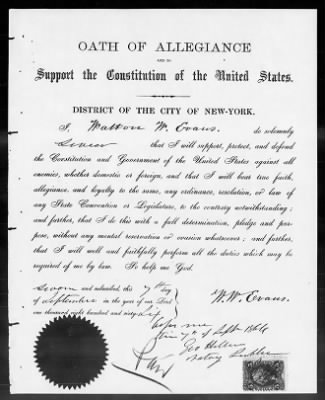 OATH OF ALLEGIANCE
AND TO
Support the Constitution of the United States.
DISTRICT OF THE CITY OF NEW-YORK.
I, Walton W. Evans. do solemnly
swear that I will support, protect, and defend
the Constitution and Government of the United States against all
enemies, whether domestic or foreign, and that I will bear true faith,
allegiance, and loyalty to the same, any ordinance, resolution, or law of
any State Convention or Legislature, to the contrary notwithstanding;
and further, that I do this with a full determination, pledge and pur-
pose, without any mental reservation or evasion whatsoever; and further,
that I will well and faithfully perform all the duties which may be
required of me by law. So help me God.
Sworn and subscribed, this 7th day
of September in the year of our Lord
one thousand eight hundred and sixty-six
W. W. Evans.
before me
this 7th of Sept 1866
Geo
Notary Public